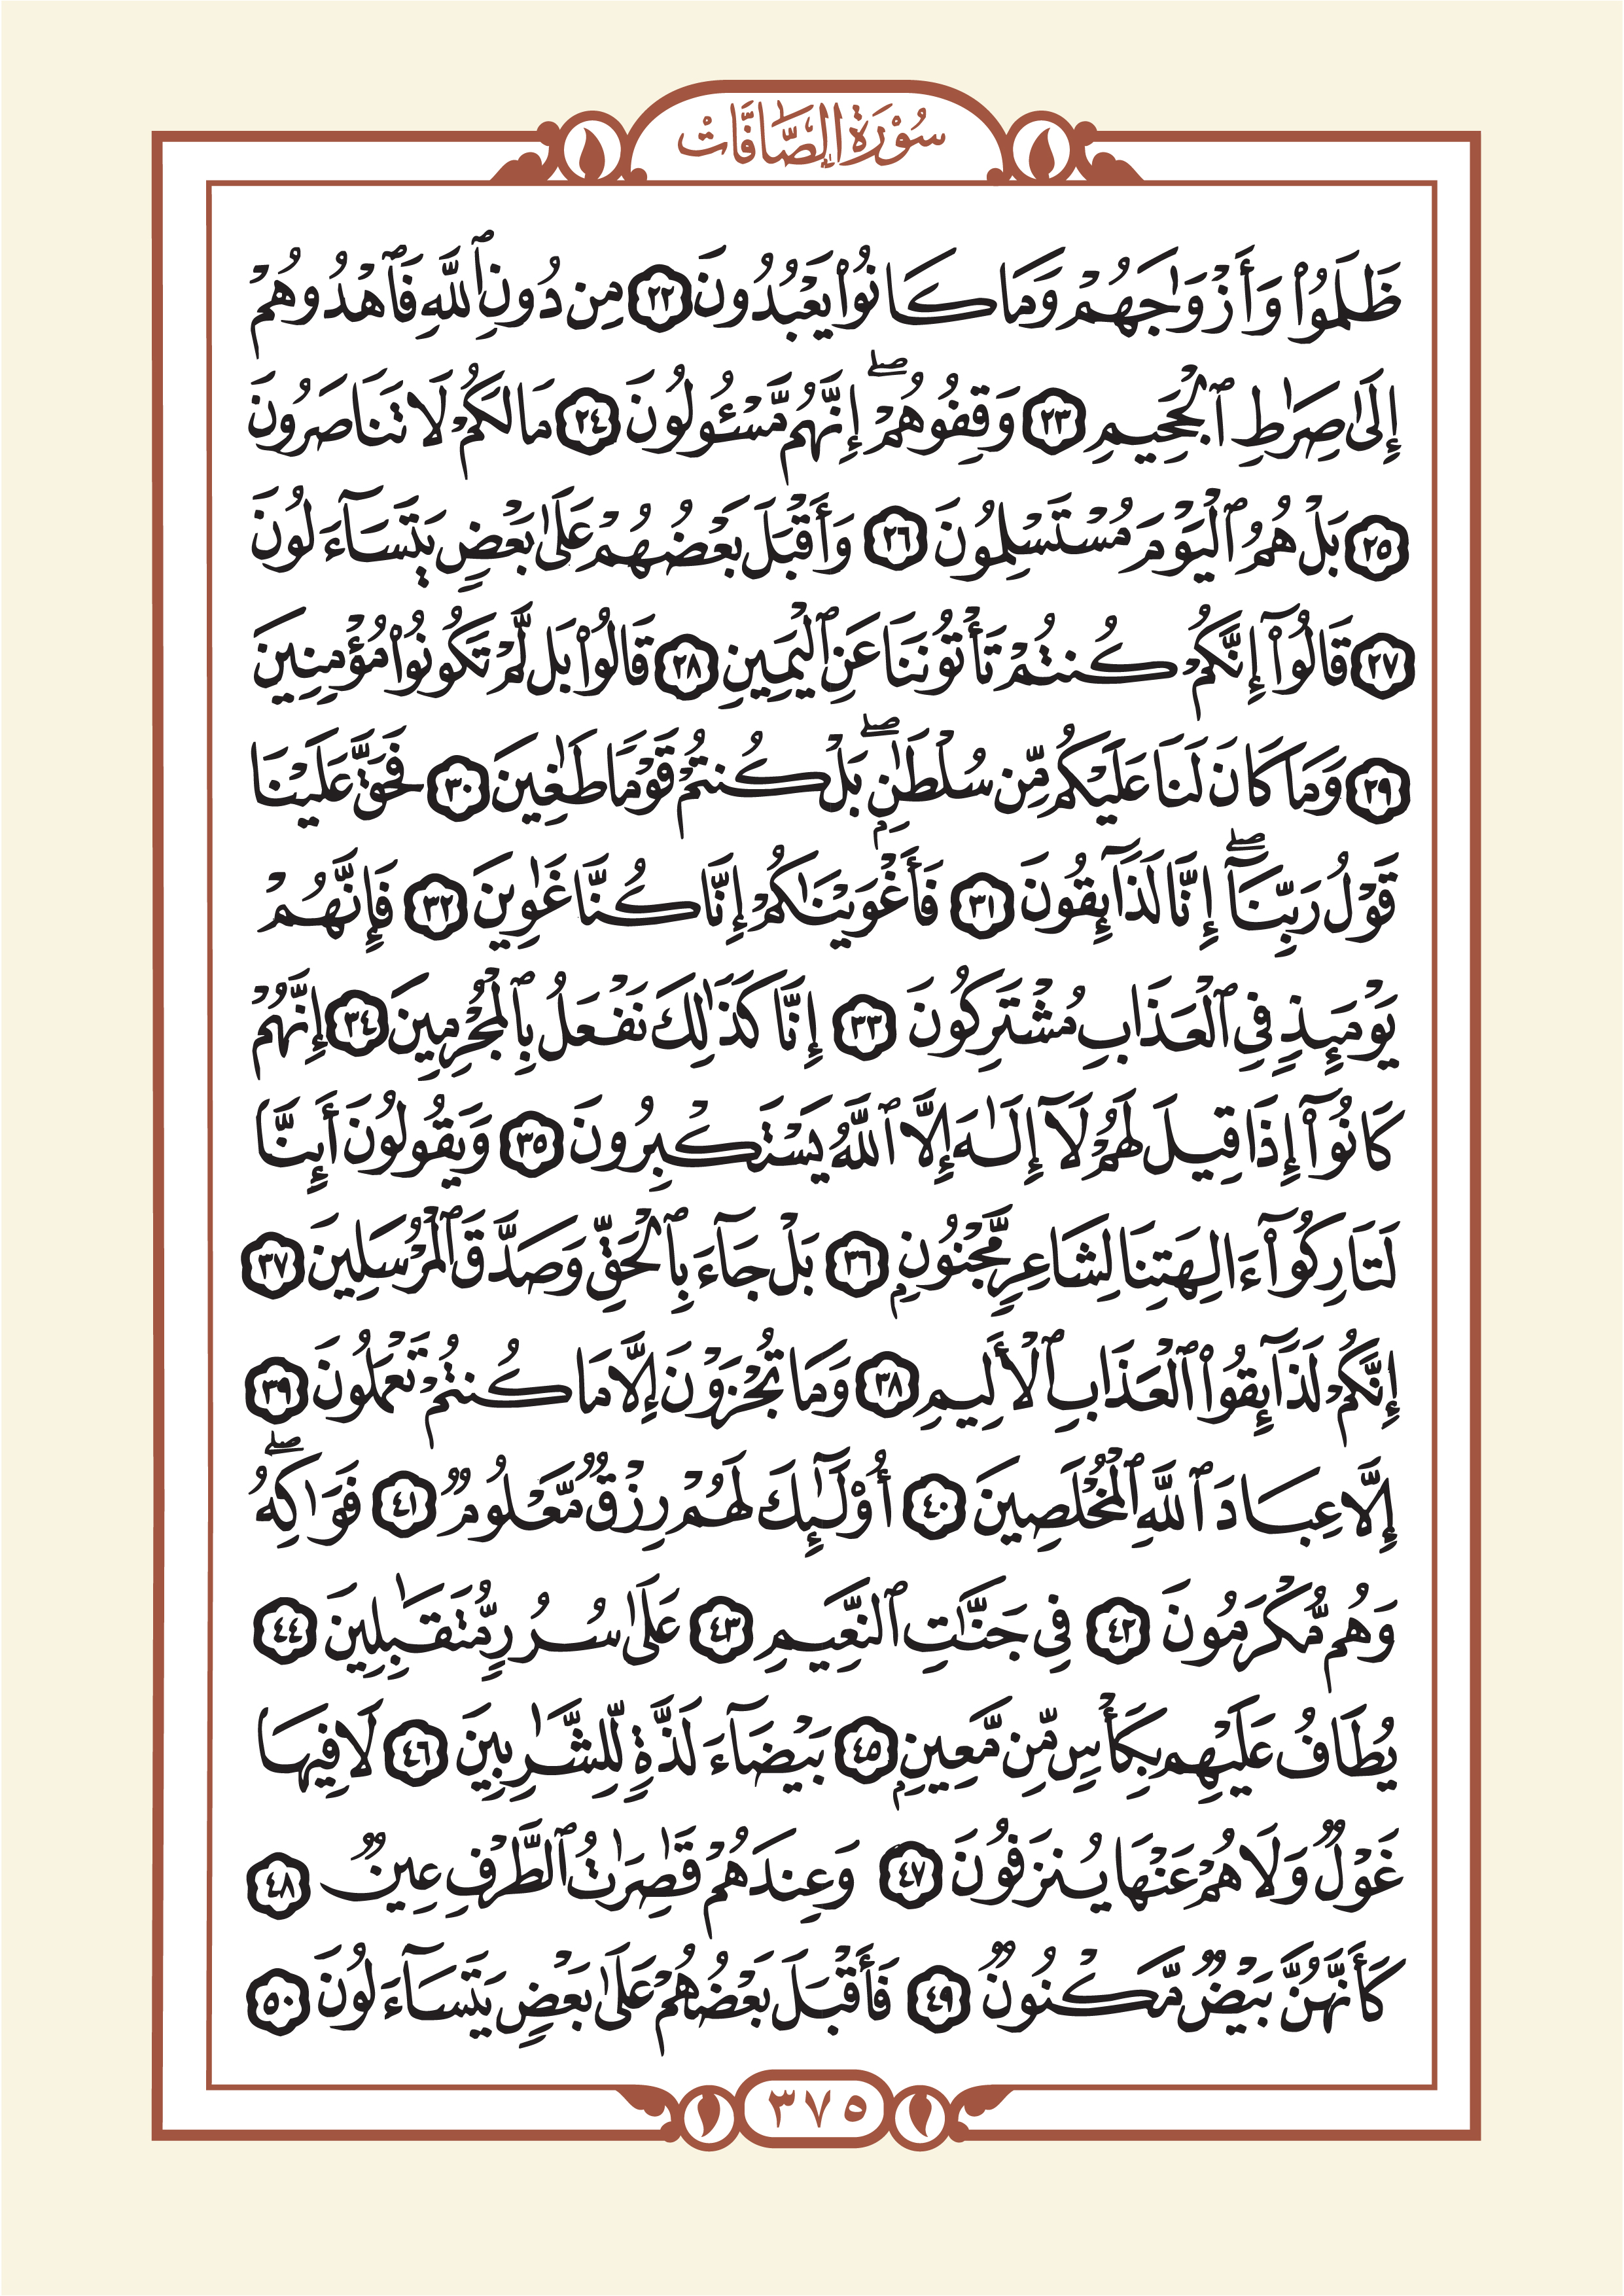 سُوْرَةُ الصَّافَّات
ظَلَمُوا۟ وَأَزْوَٰجَهُمْ وَمَا كَانُوا۟ يَعْبُدُونَ ٢٢ مِن دُونِ ٱللَّهِ فَٱهْدُوهُمْ
إِلَىٰ صِرَٰطِ ٱلْجَحِيمِ ٢٣ وَقِفُوهُمْ ۖ إِنَّهُم مَّسْـُٔولُونَ ٢٤ مَا لَكُمْ لَا تَنَاصَرُونَ
٢٥ بَلْ هُمُ ٱلْيَوْمَ مُسْتَسْلِمُونَ ٢٦ وَأَقْبَلَ بَعْضُهُمْ عَلَىٰ بَعْضٍ يَتَسَآءَلُونَ
٢٧ قَالُوٓا۟ إِنَّكُمْ كُنتُمْ تَأْتُونَنَا عَنِ ٱلْيَمِينِ ٢٨ قَالُوا۟ بَل لَّمْ تَكُونُوا۟ مُؤْمِنِينَ
٢٩ وَمَا كَانَ لَنَا عَلَيْكُم مِّن سُلْطَٰنٍۭ ۖ بَلْ كُنتُمْ قَوْمًا طَٰغِينَ ٣٠ فَحَقَّ عَلَيْنَا
قَوْلُ رَبِّنَآ ۖ إِنَّا لَذَآئِقُونَ ٣١ فَأَغْوَيْنَٰكُمْ إِنَّا كُنَّا غَٰوِينَ ٣٢ فَإِنَّهُمْ
يَوْمَئِذٍ فِى ٱلْعَذَابِ مُشْتَرِكُونَ ٣٣ إِنَّا كَذَٰلِكَ نَفْعَلُ بِٱلْمُجْرِمِينَ ٣٤ إِنَّهُمْ
كَانُوٓا۟ إِذَا قِيلَ لَهُمْ لَآ إِلَٰهَ إِلَّا ٱللَّهُ يَسْتَكْبِرُونَ ٣٥ وَيَقُولُونَ أَئِنَّا
لَتَارِكُوٓا۟ ءَالِهَتِنَا لِشَاعِرٍ مَّجْنُونٍۭ ٣٦ بَلْ جَآءَ بِٱلْحَقِّ وَصَدَّقَ ٱلْمُرْسَلِينَ ٣٧
إِنَّكُمْ لَذَآئِقُوا۟ ٱلْعَذَابِ ٱلْأَلِيمِ ٣٨ وَمَا تُجْزَوْنَ إِلَّا مَا كُنتُمْ تَعْمَلُونَ ٣٩
إِلَّا عِبَادَ ٱللَّهِ ٱلْمُخْلَصِينَ ٤٠ أُو۟لَٰٓئِكَ لَهُمْ رِزْقٌ مَّعْلُومٌ ٤١ فَوَاكِهُ ۖ
وَهُم مُّكْرَمُونَ ٤٢ فِى جَنَّٰتِ ٱلنَّعِيمِ ٤٣ عَلَىٰ سُرُرٍ مُّتَقَٰبِلِينَ ٤٤
يُطَافُ عَلَيْهِم بِكَأْسٍ مِّن مَّعِينٍۭ ٤٥ بَيْضَآءَ لَذَّةٍ لِّلشَّٰرِبِينَ ٤٦ لَا فِيهَا
غَوْلٌ وَلَا هُمْ عَنْهَا يُنزَفُونَ ٤٧ وَعِندَهُمْ قَٰصِرَٰتُ ٱلطَّرْفِ عِينٌ ٤٨
كَأَنَّهُنَّ بَيْضٌ مَّكْنُونٌ ٤٩ فَأَقْبَلَ بَعْضُهُمْ عَلَىٰ بَعْضٍ يَتَسَآءَلُونَ ٥٠
٣٧٥